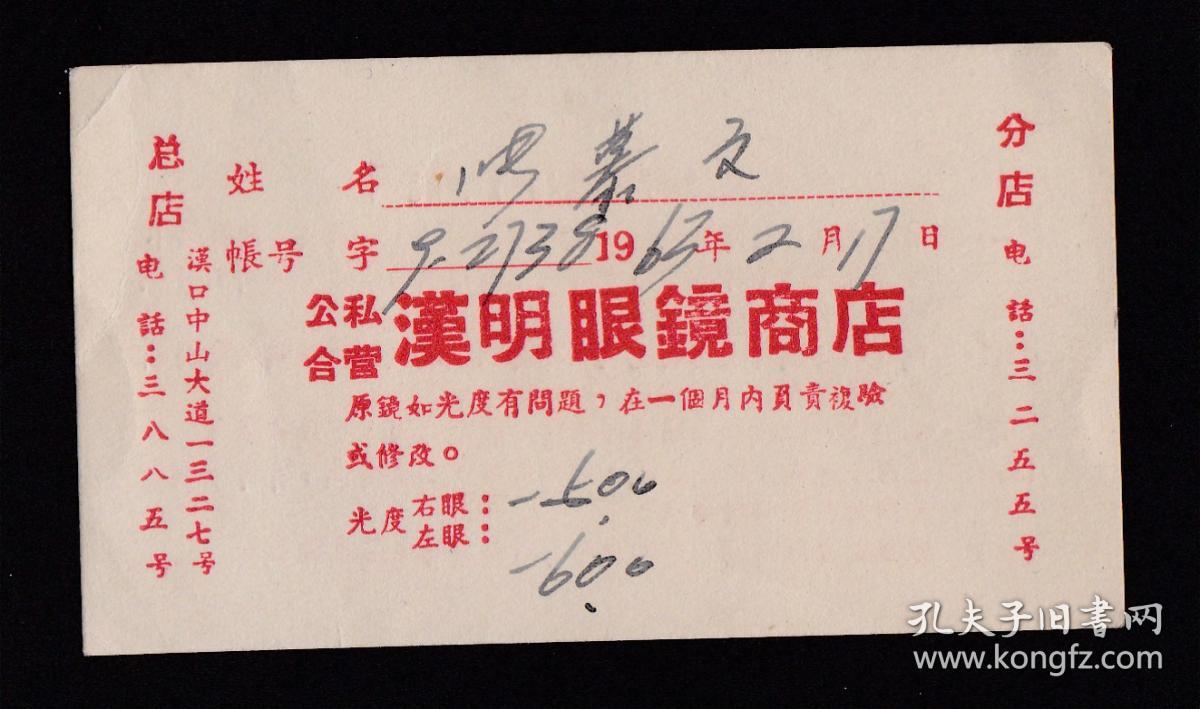 总店
电話：三八八五号
漢口中山大道一三二七号
姓名 慕文
帳号 字 9-2738 1963年2月17日
公私合营 漢明眼鏡商店
原鏡如光度有問題，在一個月内負責複驗
或修改。
光度 右眼： -5.00
左眼： -6.00
分店
电話：三二五五号
孔夫子旧书网
www.kongfz.com